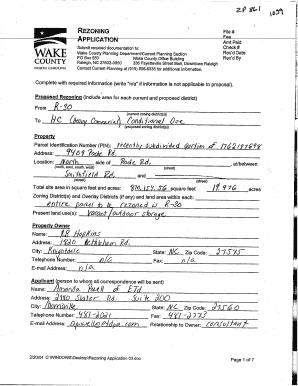 ZP 861 1029
REZONING
APPLICATION
File #
Fee
Amt Paid
Check #
Rec'd Date
Rec'd By
Submit required documentation to:
Wake County Planning Department/Current Planning Section
PO Box 550 Wake County Office Building
Raleigh, NC 27602-0550 336 Fayetteville Street, Downtown Raleigh
Contact Current Planning at (919) 856-6335 for additional information.
WAKE
COUNTY
NORTH CAROLINA
Complete with required information (write "n/a" if information is not applicable to proposal).
Proposed Rezoning (include area for each current and proposed district)
From R-30
(current zoning district(s))
To HC (Heavy Commercial) Conditional Use
(proposed zoning district(s))
Property
Parcel Identification Number (PIN): recently subdivided portion of 1762187698
Address: 9409 Poole Rd.
Location: North side of Poole Rd. at/between
(north, east, south, west) (street)
Smithfield Rd. and
(street) (street)
Total site area in square feet and acres: square feet 19.976 acres
Zoning District(s) and Overlay Districts (if any) and land area within each:
entire parcel to be rezoned is R-30
Present land use(s): Vacant/outdoor storage
Property Owner
Name: Hopkins
Address: 1820 Bethlehem Rd.
City: Knightdale State: NC Zip Code: 27545
Telephone Number: n/a Fax: n/a
E-mail Address: n/a
Applicant (person to whom all correspondence will be sent)
Name: Amanda of
Address: Suite 200
City: Morrisville State: NC Zip Code: 27560
Telephone Number: 481-2021 Fax: 481-2773
E-mail Address: Relationship to Owner: consultant
Page 1 of 7